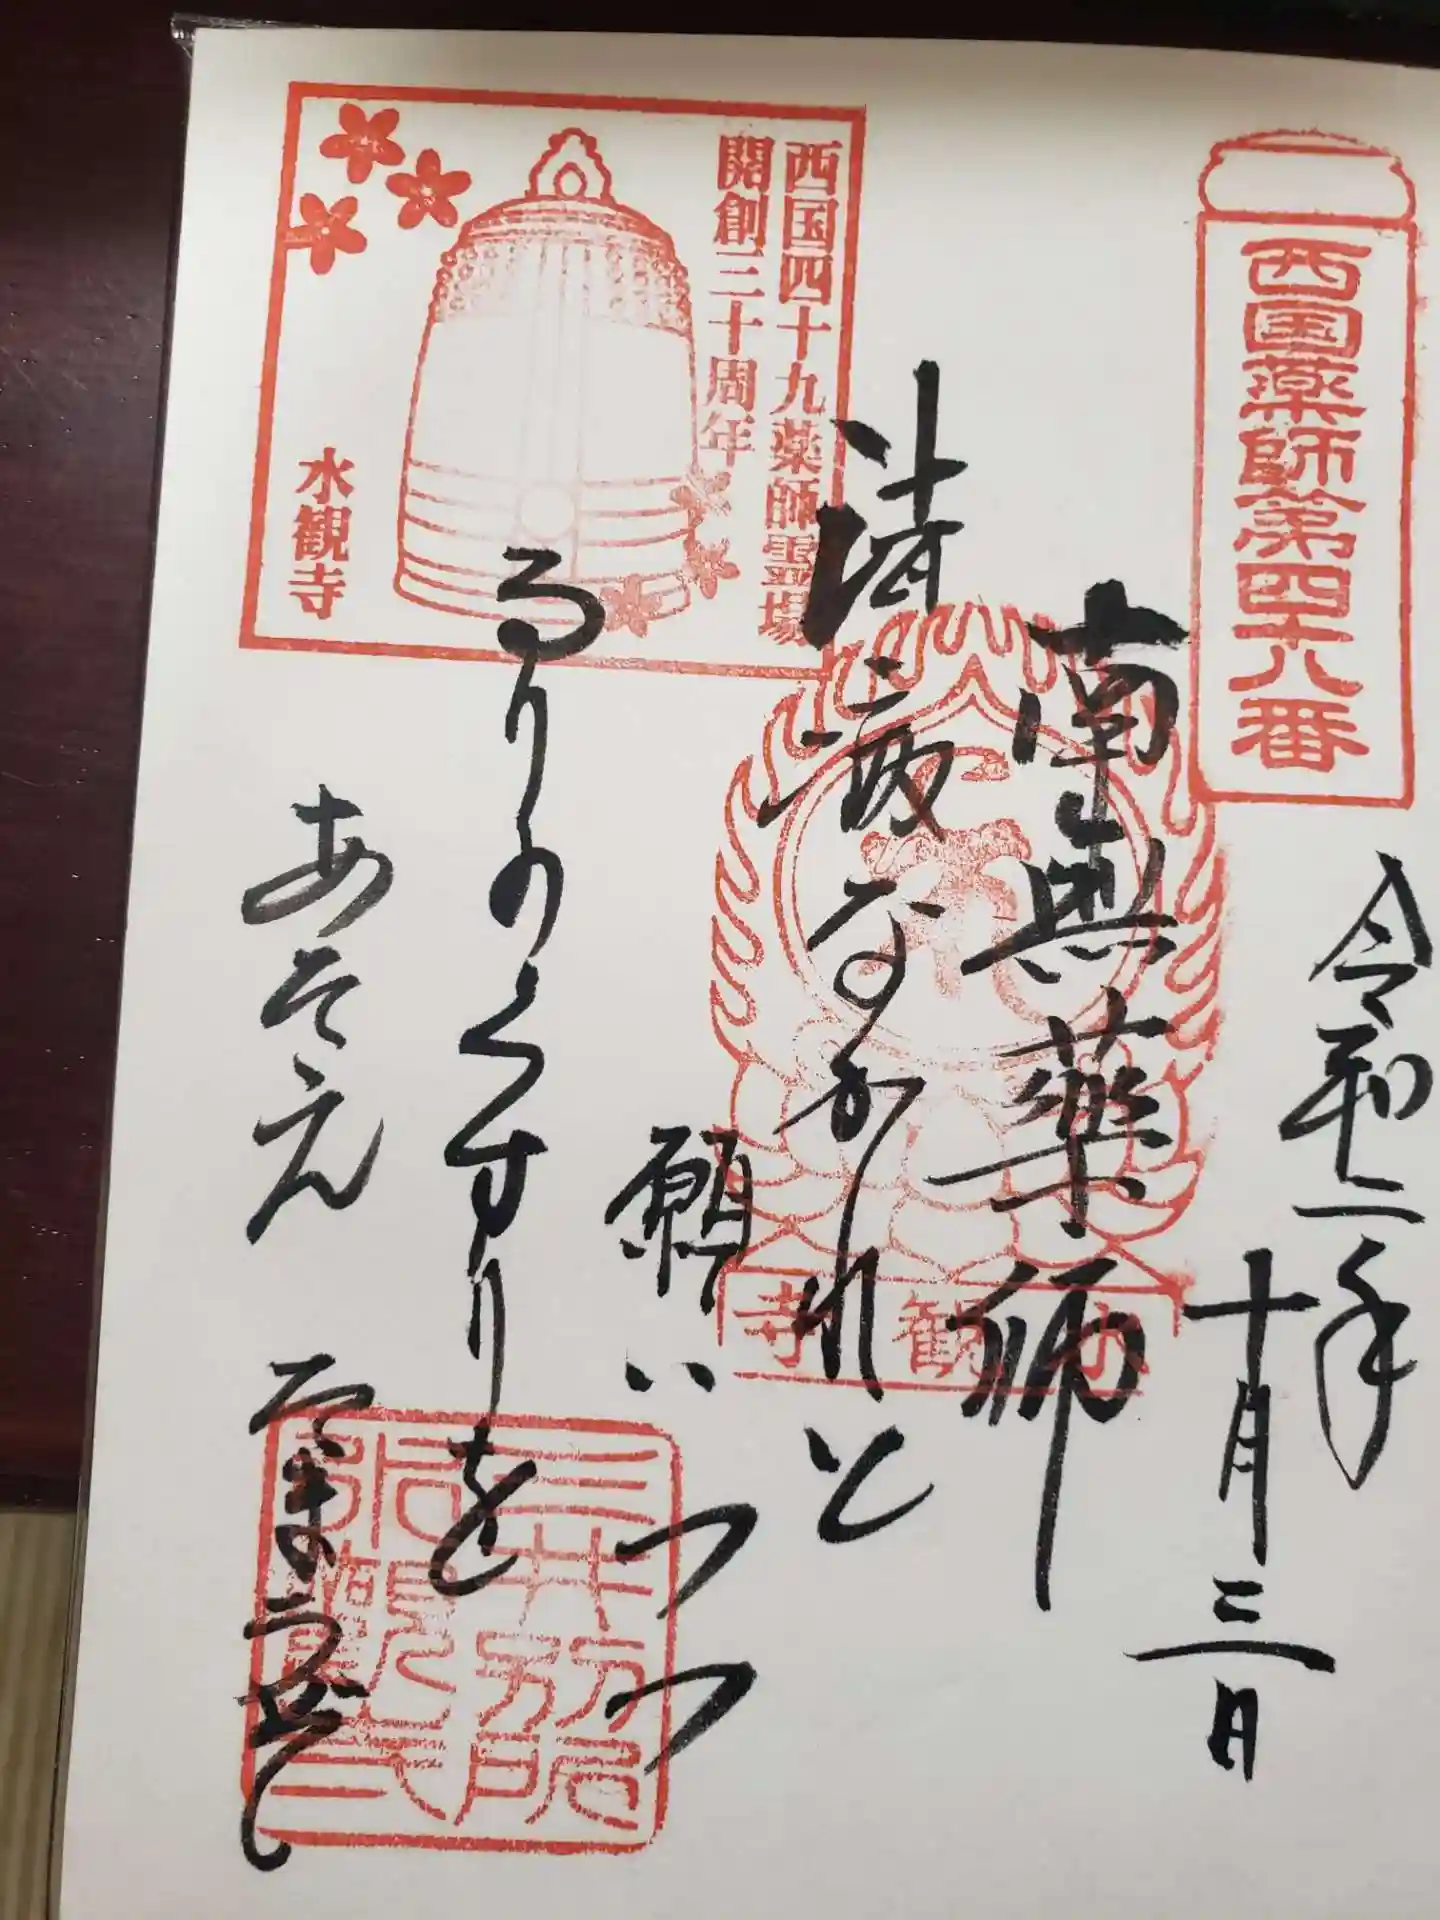 西国薬師第四十八番
令和二年
十月三日
南無薬師
諸病なかれと
願いつつ
るりのくすりを
あたえ
西国四十九薬師霊場
開創三十周年
水観寺
水観寺
三井別所